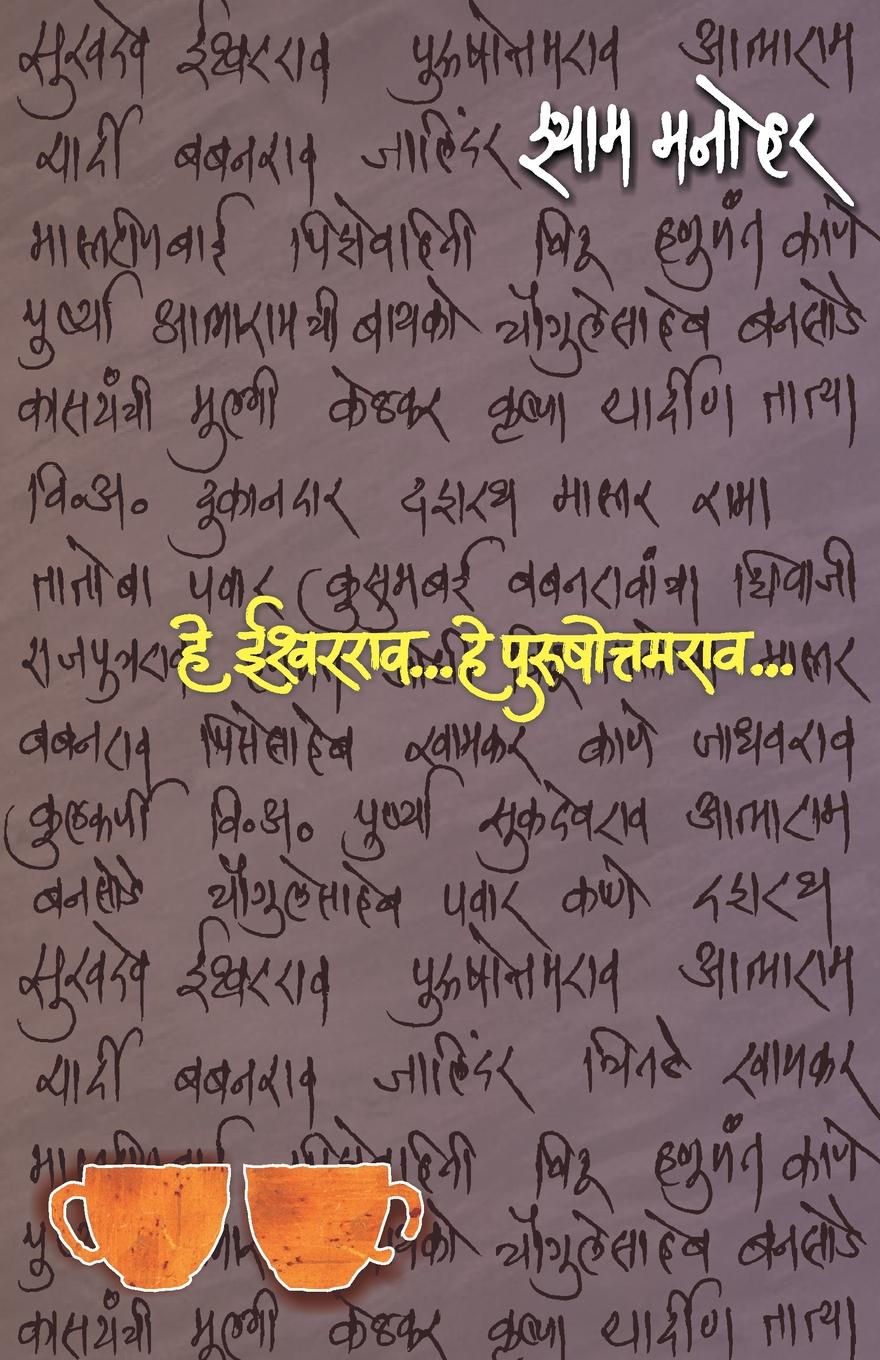 सुखदेव ईश्वरराव पुरूषोत्तमराव आत्माराम
श्याम मनोहर
यादी बबनराव जालिंदर
मास्तरीणबाई पिसेवहिनी बिटू हणुमंत काणे
पुर्ष्या आत्मारामची बायको चौगुलेसाहेब बनसोडे
कासयंत्री मुलगी केळकर कृष्णा तात्या
वि.अ. दुकानदार दशरथ मास्तर रामा
तातोबा पवार कुसुमबाई बबनरावांचा शिवाजी
राजपुत्रराव
हे ईश्वरराव...हे पुरुषोत्तमराव...
मास्तर
बबनराव पिसेसाहेब खामकर काणे जाधवराव
कुलकर्णी वि.अ. सुकदेवराव आत्माराम
बनसोडे चौगुलेसाहेब पवार काणे दशरथ
सुखदेव ईश्वरराव पुरूषोत्तमराव आत्माराम
बबनराव जालिंदर चितळे खामकर
हणुमंत काणे
चौगुलेसाहेब बनसोडे
मुलगी केळकर कृष्णा तात्या